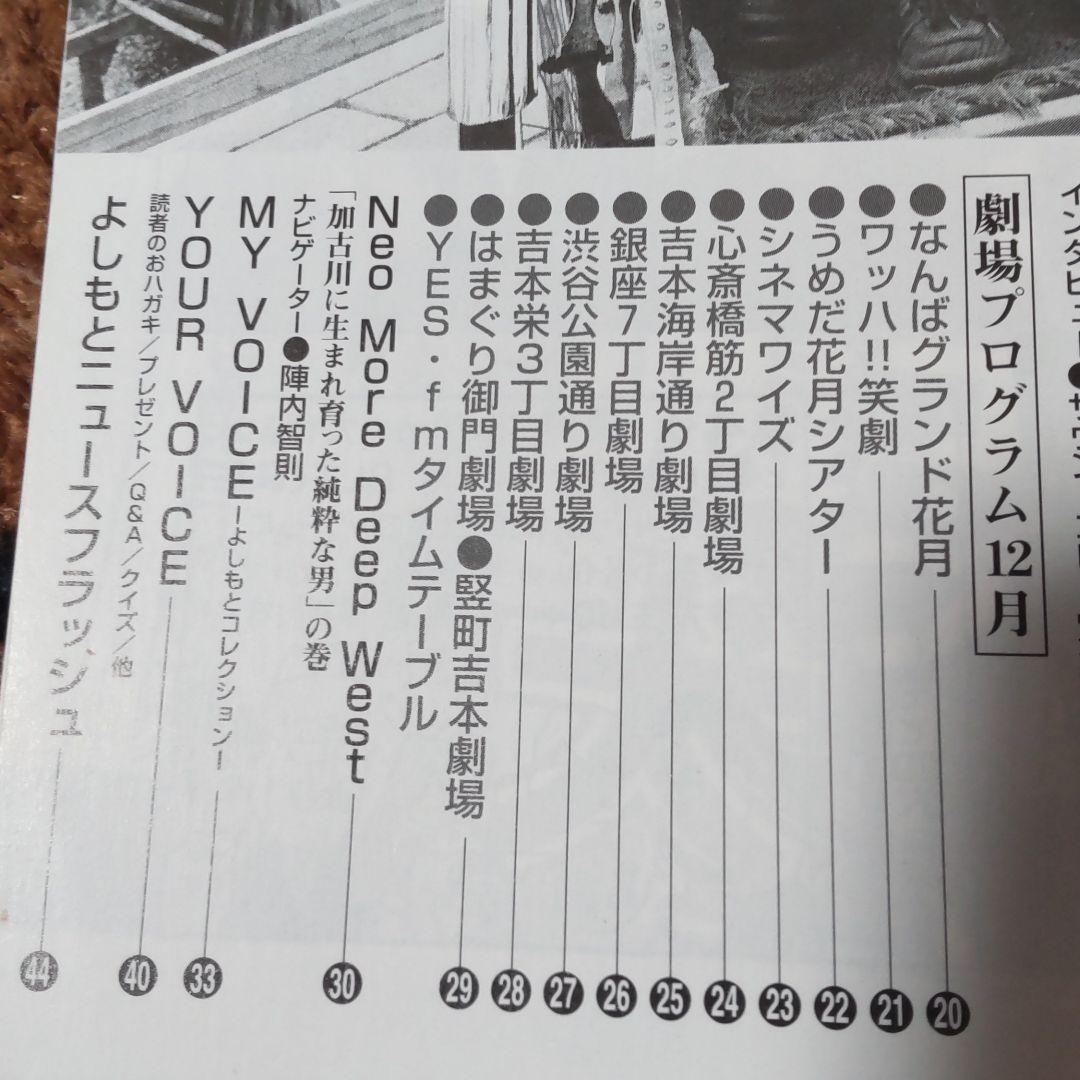 劇場プログラム12月
●なんばグランド花月 20
●ワッハ!!笑劇 21
●うめだ花月シアター 22
●シネマワイズ 23
●心斎橋筋2丁目劇場 24
●吉本海岸通り劇場 25
●銀座7丁目劇場 26
●渋谷公園通り劇場 27
●吉本栄3丁目劇場 28
●はまぐり御門劇場●竪町吉本劇場 29
●YES・fmタイムテーブル
Neo More Deep West 30
「加古川に生まれ育った純粋な男」の巻
ナビゲーター●陣内智則
MY VOICE—よしもとコレクション— 33
YOUR VOICE 40
読者のおハガキ/プレゼント/Q&A/クイズ/他
よしもとニュースフラッシュ 44